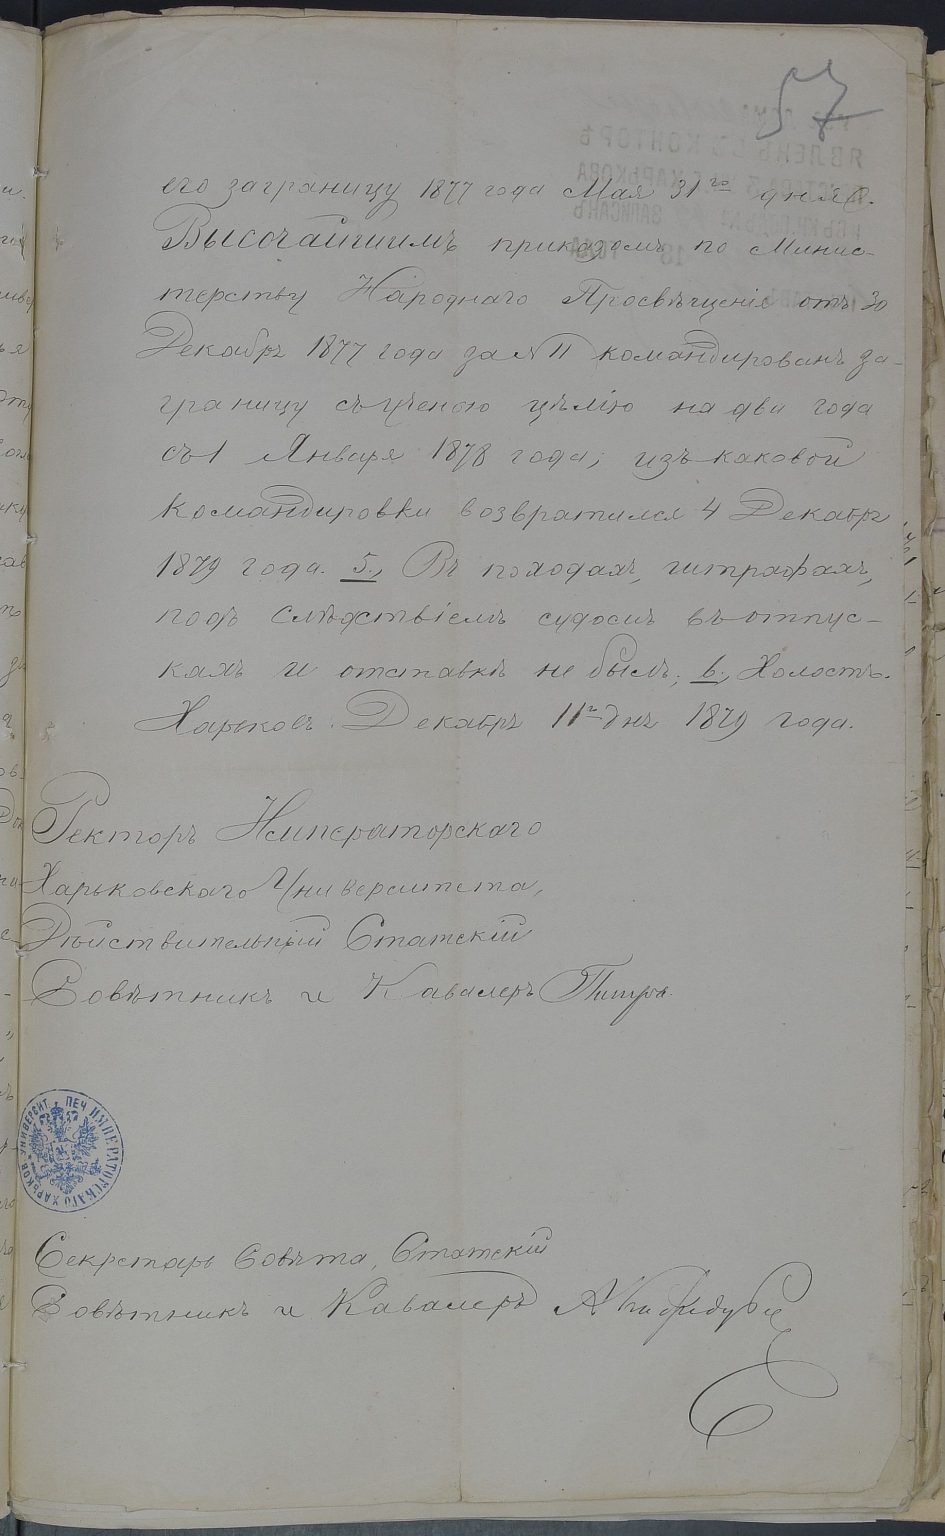 57
его заграницу 1877 года Мая 31го дня.
Высочайшимъ приказомъ по Минис-
терству Народнаго Просвѣщенія отъ 30
Декабря 1877 года за № 11 командированъ за-
границу съ ученою цѣлію на два года
съ 1 Января 1878 года; изъ каковой
командировки возвратился 4 Декабря
1879 года. 5., Въ походахъ, штрафахъ,
подъ слѣдствіемъ судомъ въ отпус-
кахъ и отставкѣ не былъ; 6., Холостъ.
Харьковъ. Декабря 11го дня 1879 года.
Ректоръ Императорскаго
Харьковскаго Университета,
Дѣйствительный Статскій
Совѣтникъ и Кавалеръ Питра
ПЕЧ ИМПЕРАТОРСКАГО ХАРЬКОВ УНИВЕРСИТ
Секретарь Совѣта, Статскій
Совѣтникъ и Кавалеръ А